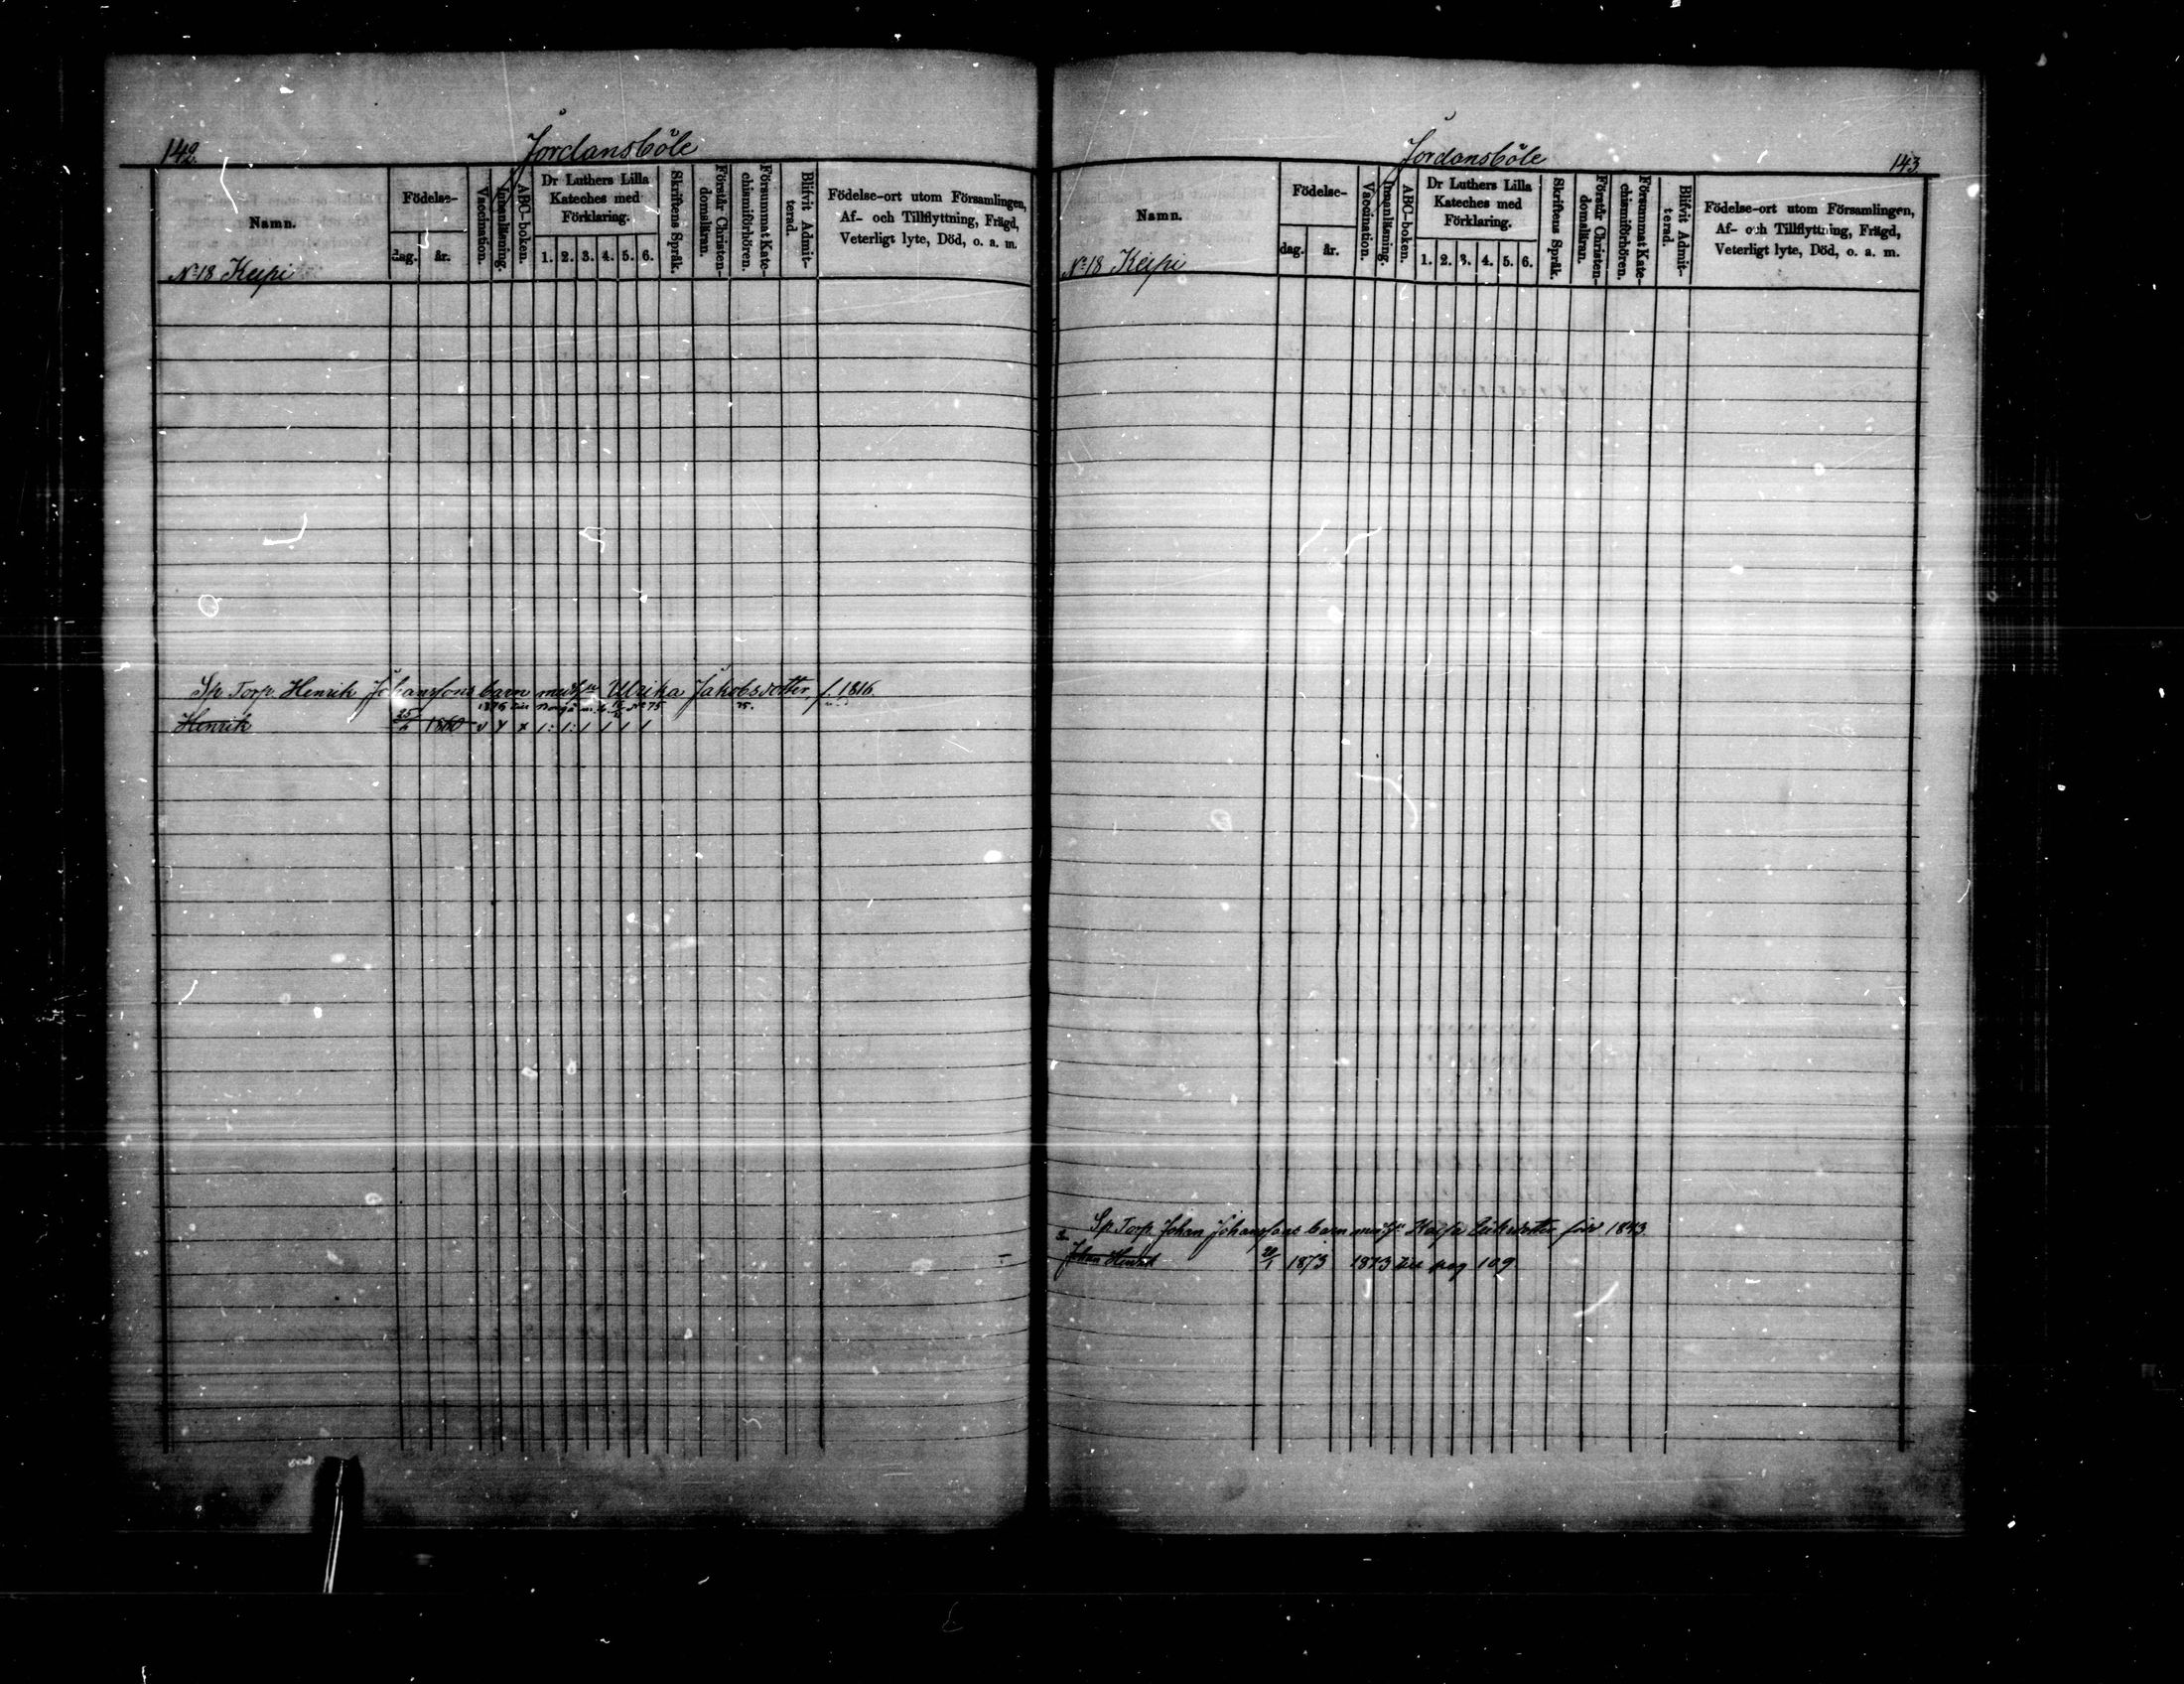 142.
Jordansböle
Namn.
Födelse-
dag.
år.
Vaccination.
Innanläsning.
ABC-boken.
Dr Luthers Lilla
Kateches med
Förklaring.
1. 2. 3. 4. 5. 6.
Skriftens Språk.
Förstår Christen-
domsläran.
Försummat Kate-
chismiförhören.
Blifvit Admit-
terad.
Födelse-ort utom Församlingen,
Af- och Tillflyttning, Frägd,
Veterligt lyte, Död, o. a. m.
No 18 Keipi
Sp Torp. Henrik Johanssons barn med Ulrika Jakobsdotter, f. 1816.
1876 Borgå No 75
Henrik 1860
Jordansböle
143.
Namn.
Födelse-
dag.
år.
Vaccination.
Innanläsning.
ABC-boken.
Dr Luthers Lilla
Kateches med
Förklaring.
1. 2. 3. 4. 5. 6.
Skriftens Språk.
Förstår Christen-
domsläran.
Försummat Kate-
chismiförhören.
Blifvit Admit-
terad.
Födelse-ort utom Församlingen,
Af- och Tillflyttning, Frägd,
Veterligt lyte, Död, o. a. m.
No 18 Keipi
Sp. Torp. Johan Johanssons barn med Kajsa 1843.
Johan Henrik 20/1 1873 1873 pag 109